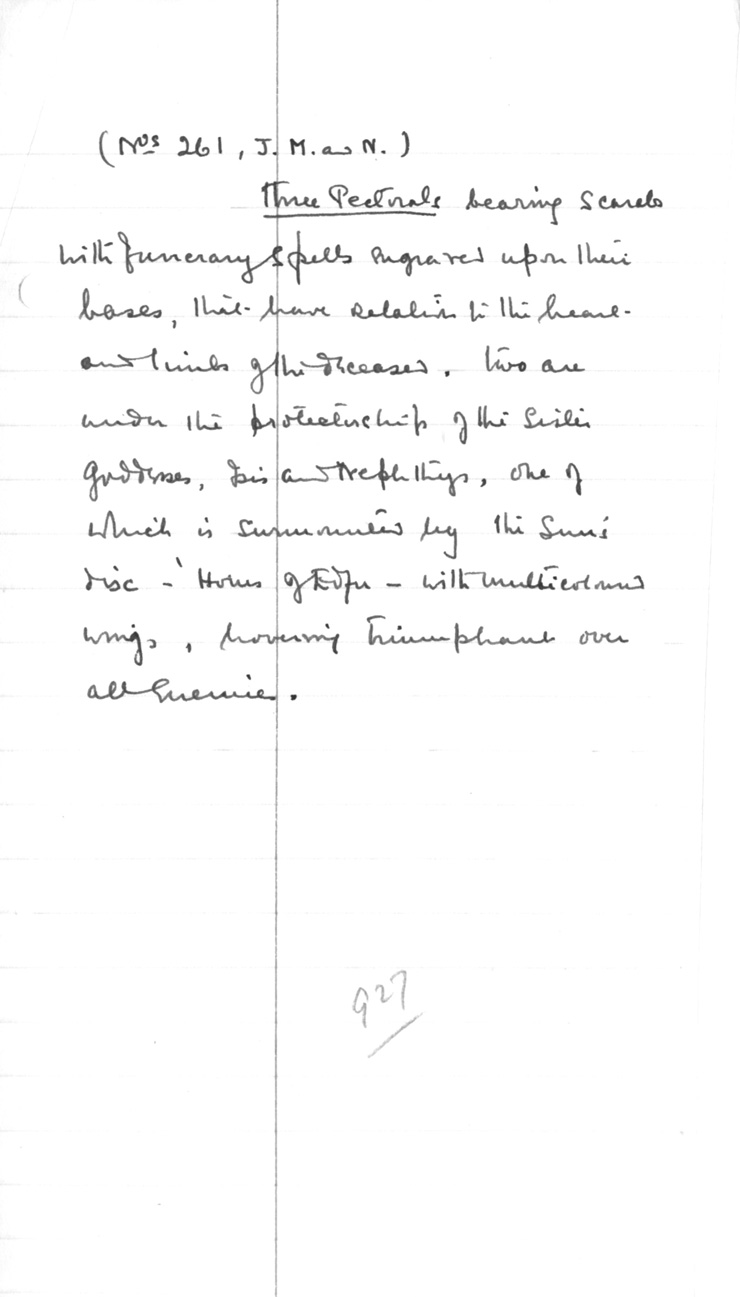 (Nos 261, J. M. and N.)
Three Pectorals bearing Scarabs
with funerary spells engraved upon their
bases, that have relation to the heart
and limbs of the deceased. Two are
under the protectorship of the Sister
Goddesses, Isis and Nephthys, one of
which is surmounted by the Sun's
disc - 'Horus of Edfu - with multicoloured
wings, hovering triumphant over
all Enemies.
927